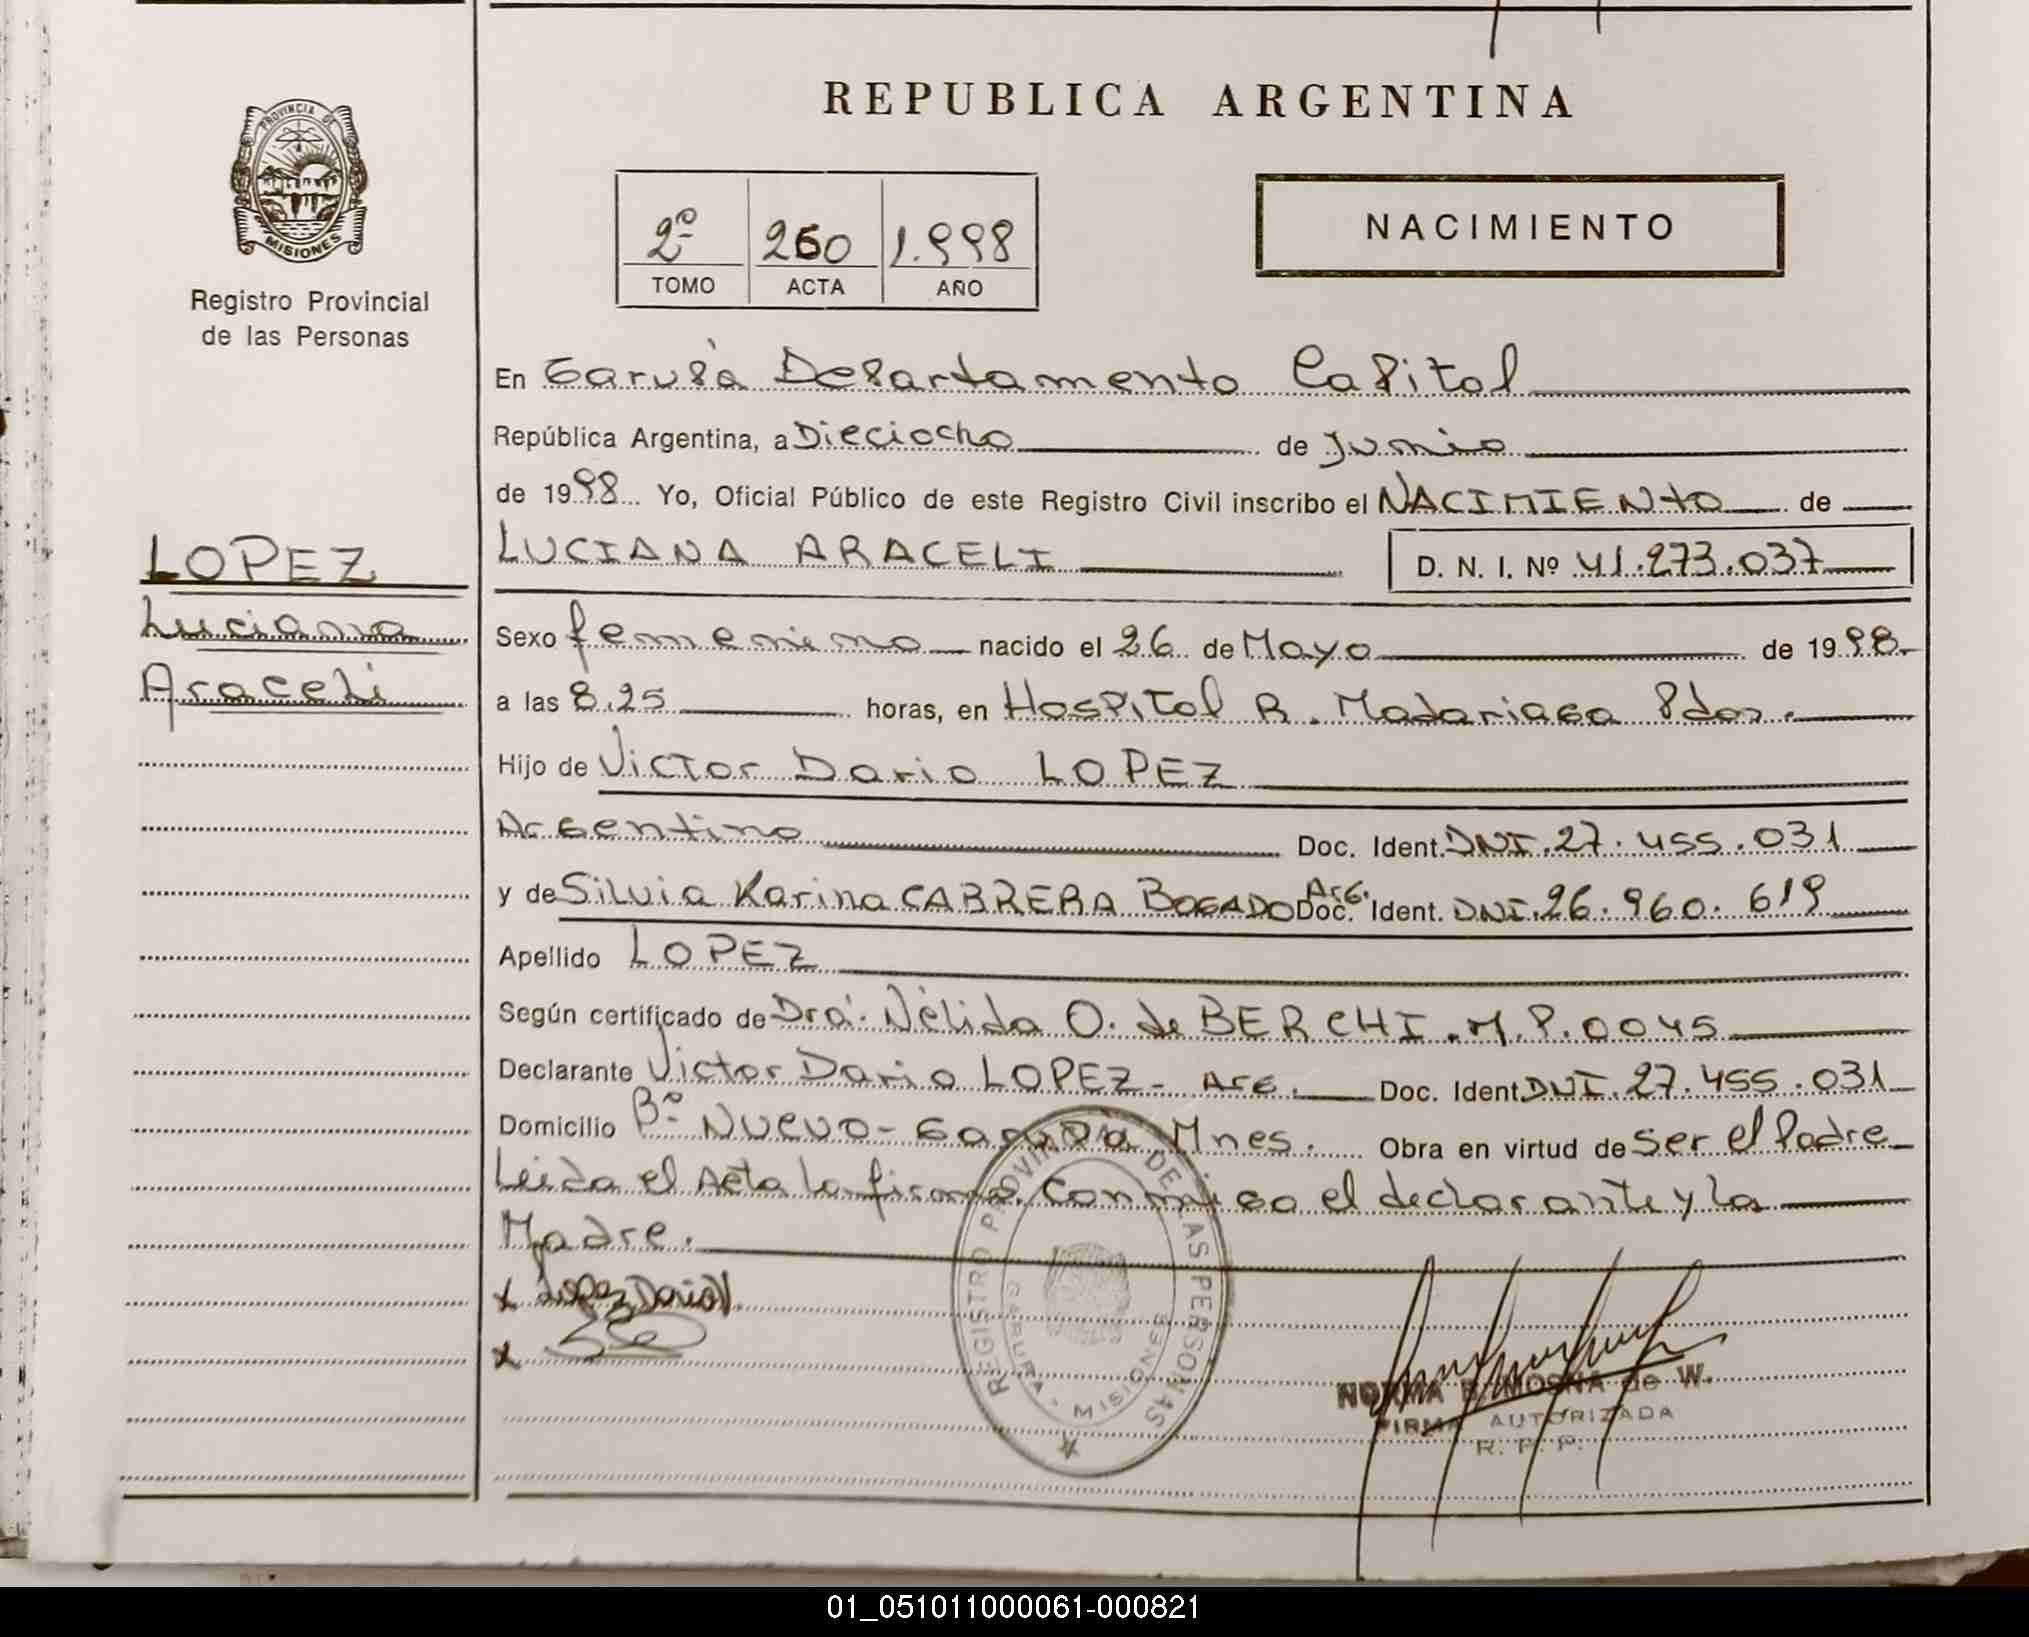 REPUBLICA ARGENTINA
PROVINCIA DE
MISIONES
Registro Provincial
de las Personas
2º 260 1.998
TOMO ACTA AÑO
NACIMIENTO
LOPEZ
Luciana
Araceli
En Garupá Departamento Capital
República Argentina, a Dieciocho de Junio
de 1998 Yo, Oficial Público de este Registro Civil inscribo el NACIMIENTO de
LUCIANA ARACELI D. N. I. Nº 41.273.037
Sexo femenino nacido el 26 de Mayo de 1998
a las 8,25 horas, en Hospital R. Madariaga Pdas.
Hijo de Victor Dario LOPEZ
Argentino Doc. Ident. DNI. 27.455.031
y de Silvia Karina CABRERA BOGADO Arg. Doc. Ident. DNI. 26.960.619
Apellido LOPEZ
Según certificado de Dra. Nélida O. de BERCHI. M.P. 0045
Declarante Victor Dario LOPEZ - Arg. Doc. Ident. DNI. 27.455.031
Domicilio Bº Nuevo - Garupá Mnes. Obra en virtud de ser el Padre
Leida el Acta la firma conmigo el declarante y la
Madre.
x Lopez Dario V.
x
REGISTRO PROVINCIAL DE LAS PERSONAS
GARUPA - MISIONES
NORMA B. MOSNA de W.
FIRMA AUTORIZADA
R. P. P.
01_051011000061-000821